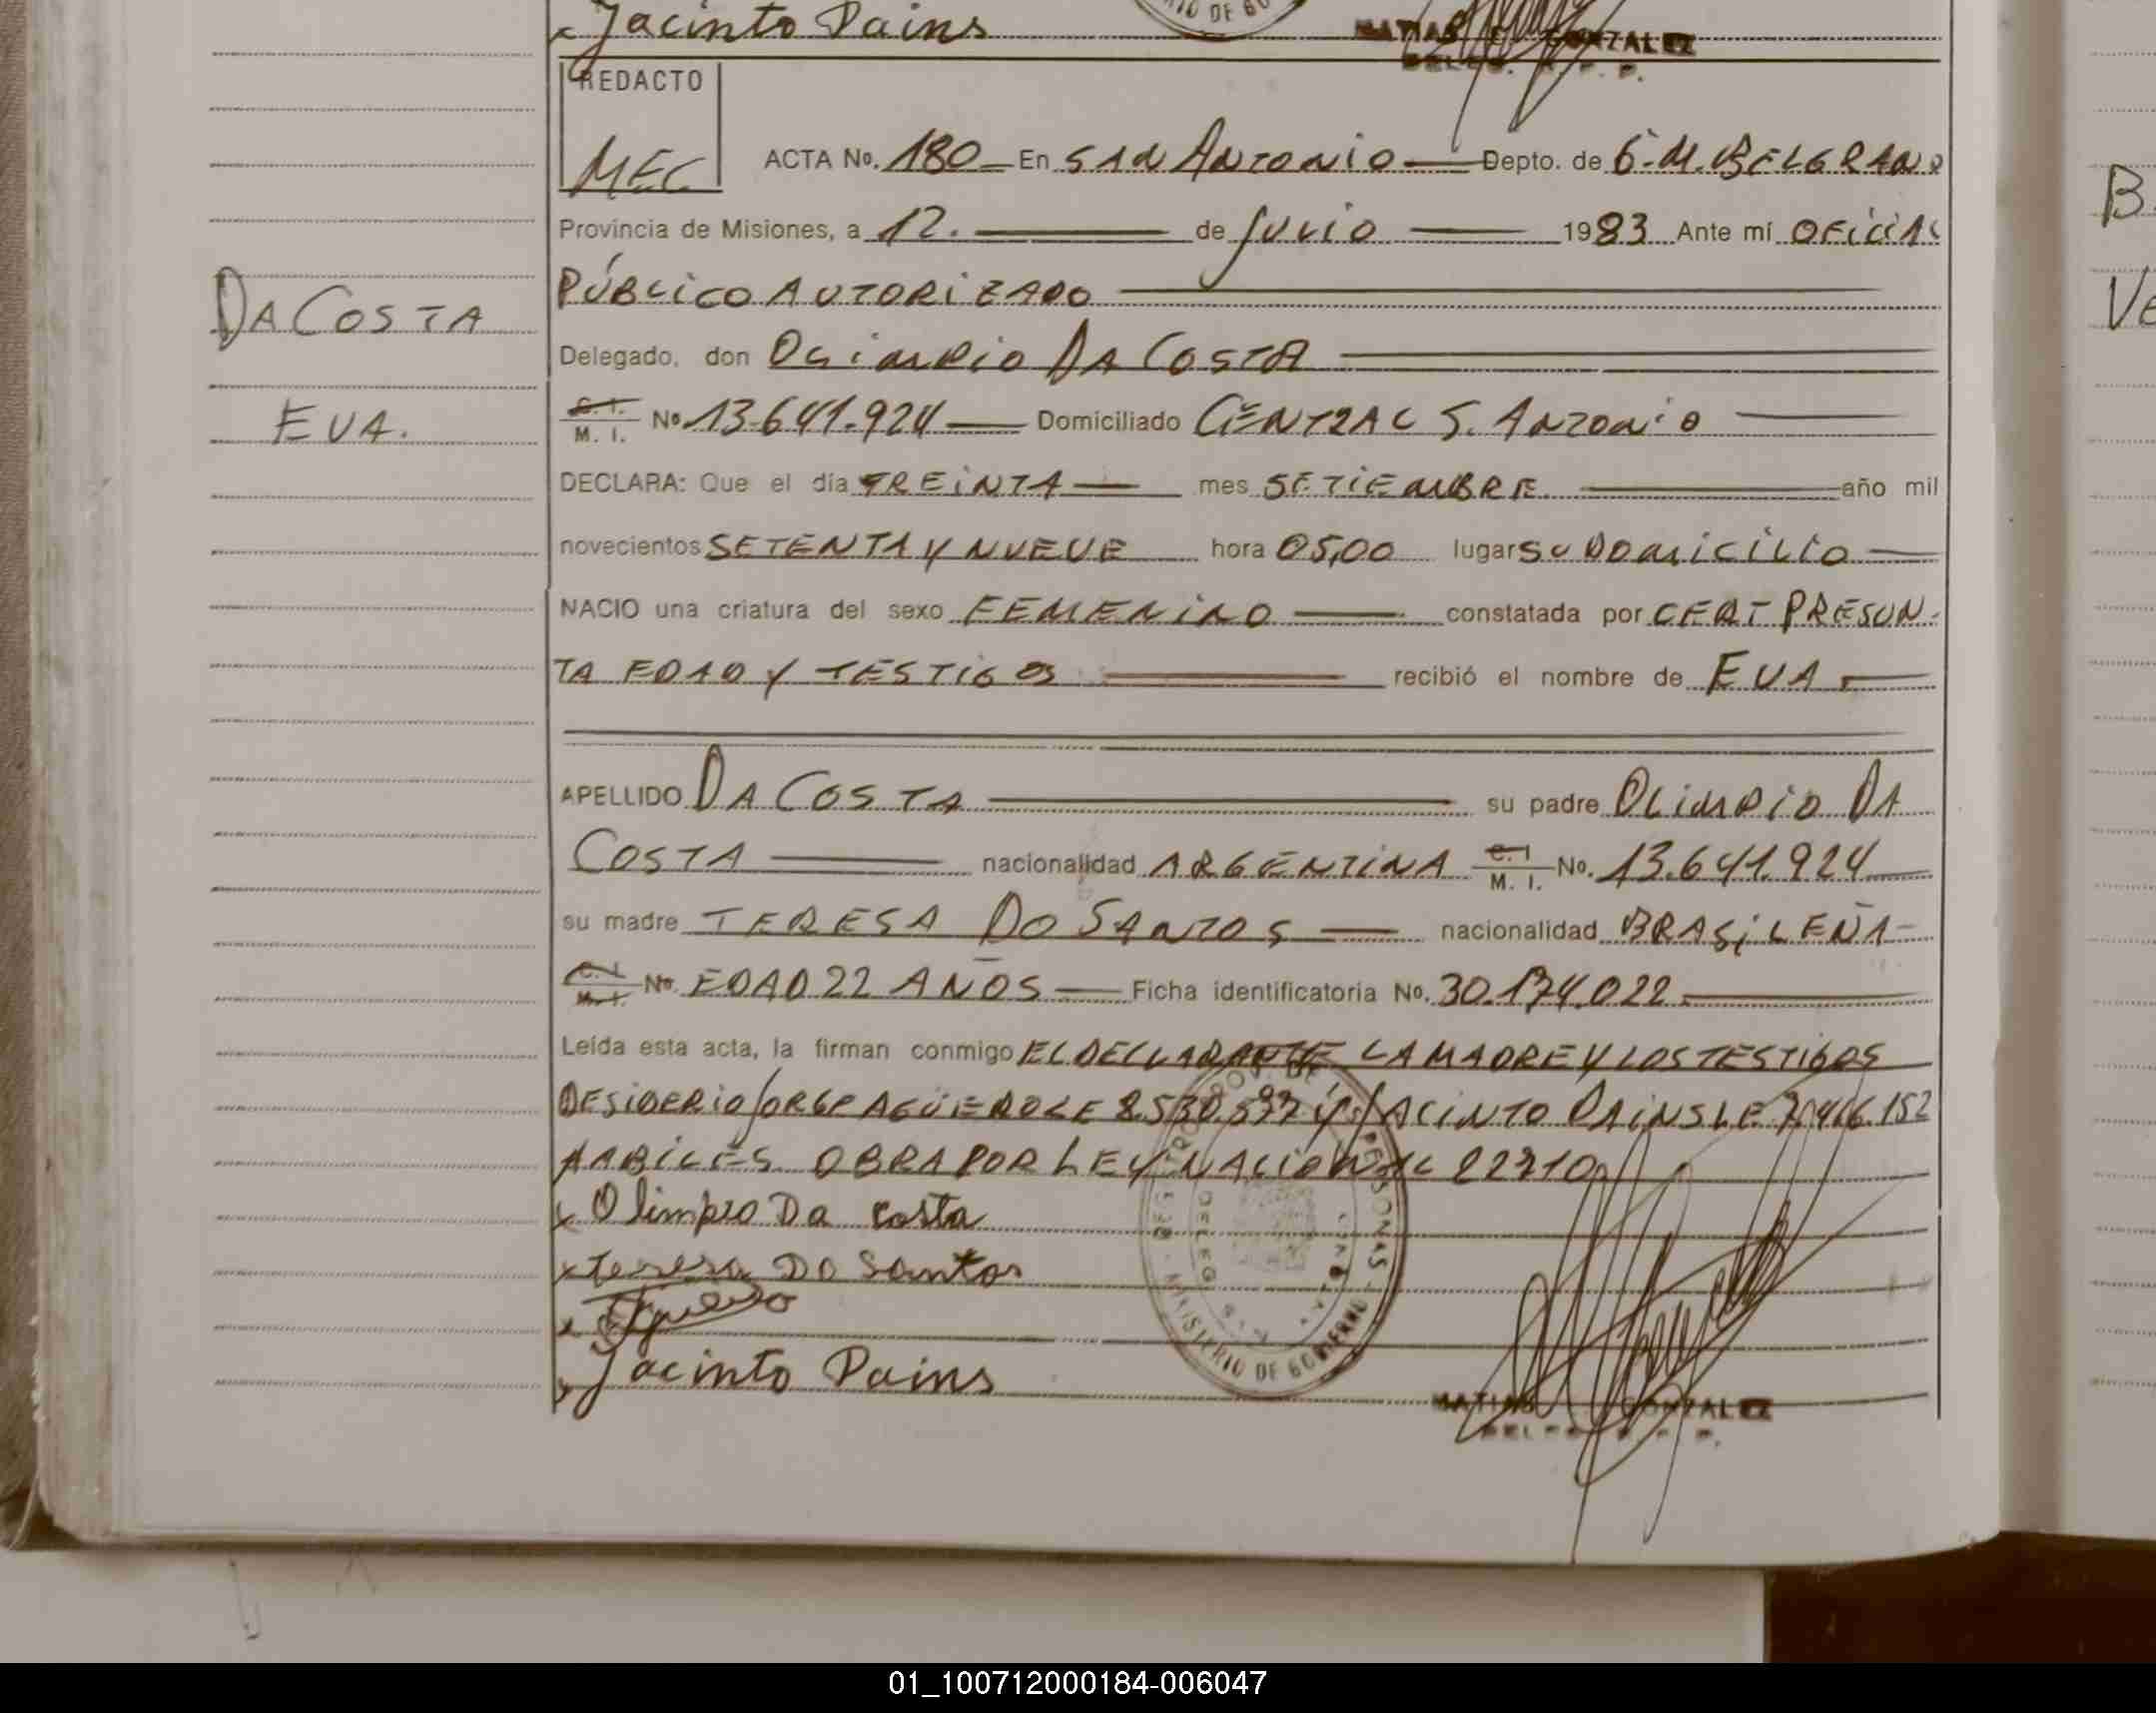 Jacinto Dains
MATIAS E. GONZALEZ
REDACTO
MEC
ACTA No. 180 En SAN ANTONIO Depto. de G.M. BELGRANO
Provincia de Misiones, a 12. de JULIO 1983 Ante mí OFICIAL
PÚBLICO AUTORIZADO
DA COSTA
Delegado, don OLIMPIO DA COSTA
EVA.
C. I.
M. I. No 13.641.924 Domiciliado CENTRAL S. ANTONIO
DECLARA: Que el día TREINTA mes SETIEMBRE año mil
novecientos SETENTA Y NUEVE hora 05,00 lugar SU DOMICILIO
NACIO una criatura del sexo FEMENINO constatada por CERT PRESUN
TA EDAD Y TESTIGOS recibió el nombre de EVA
APELLIDO DA COSTA su padre OLIMPIO DA
COSTA nacionalidad ARGENTINA C. I. M. I. No. 13.641.924
su madre TERESA DO SANTOS nacionalidad BRASILEÑA
C. I. M. I. No. EDAD 22 AÑOS Ficha identificatoria No. 30.174.022
Leída esta acta, la firman conmigo EL DECLARANTE LA MADRE Y LOS TESTIGOS
DESIDERIO JORGE AGÜERO LE 8.530.597 Y JACINTO DAINS LE 7.466.152
HABILES OBRA POR LEY NACIONAL 22710
x Olimpio Da Costa
x teresa Do Santos
x Aguero
x Jacinto Dains
MINISTERIO DE GOBIERNO
MATIAS GONZALEZ
01_100712000184-006047